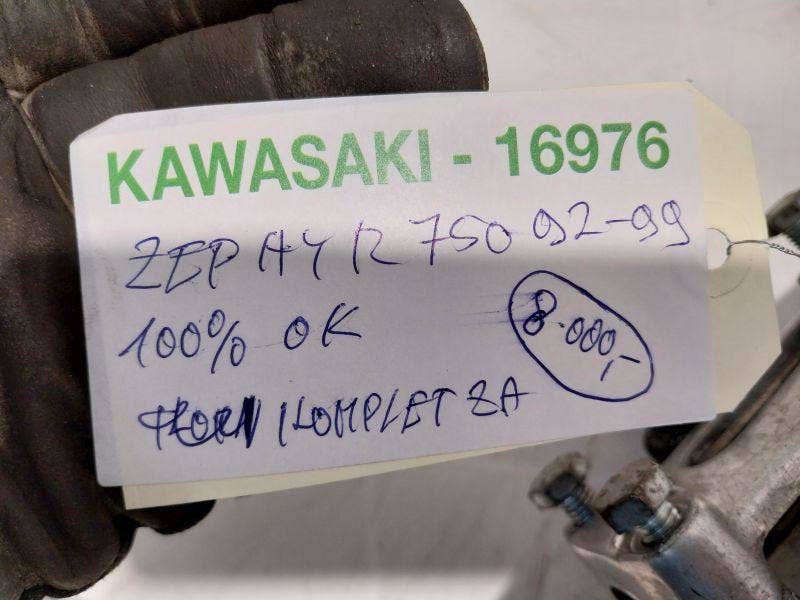 KAWASAKI - 16976
ZEPHYR 750 92-99
100% OK
8.000,-
KOMPLET ZA